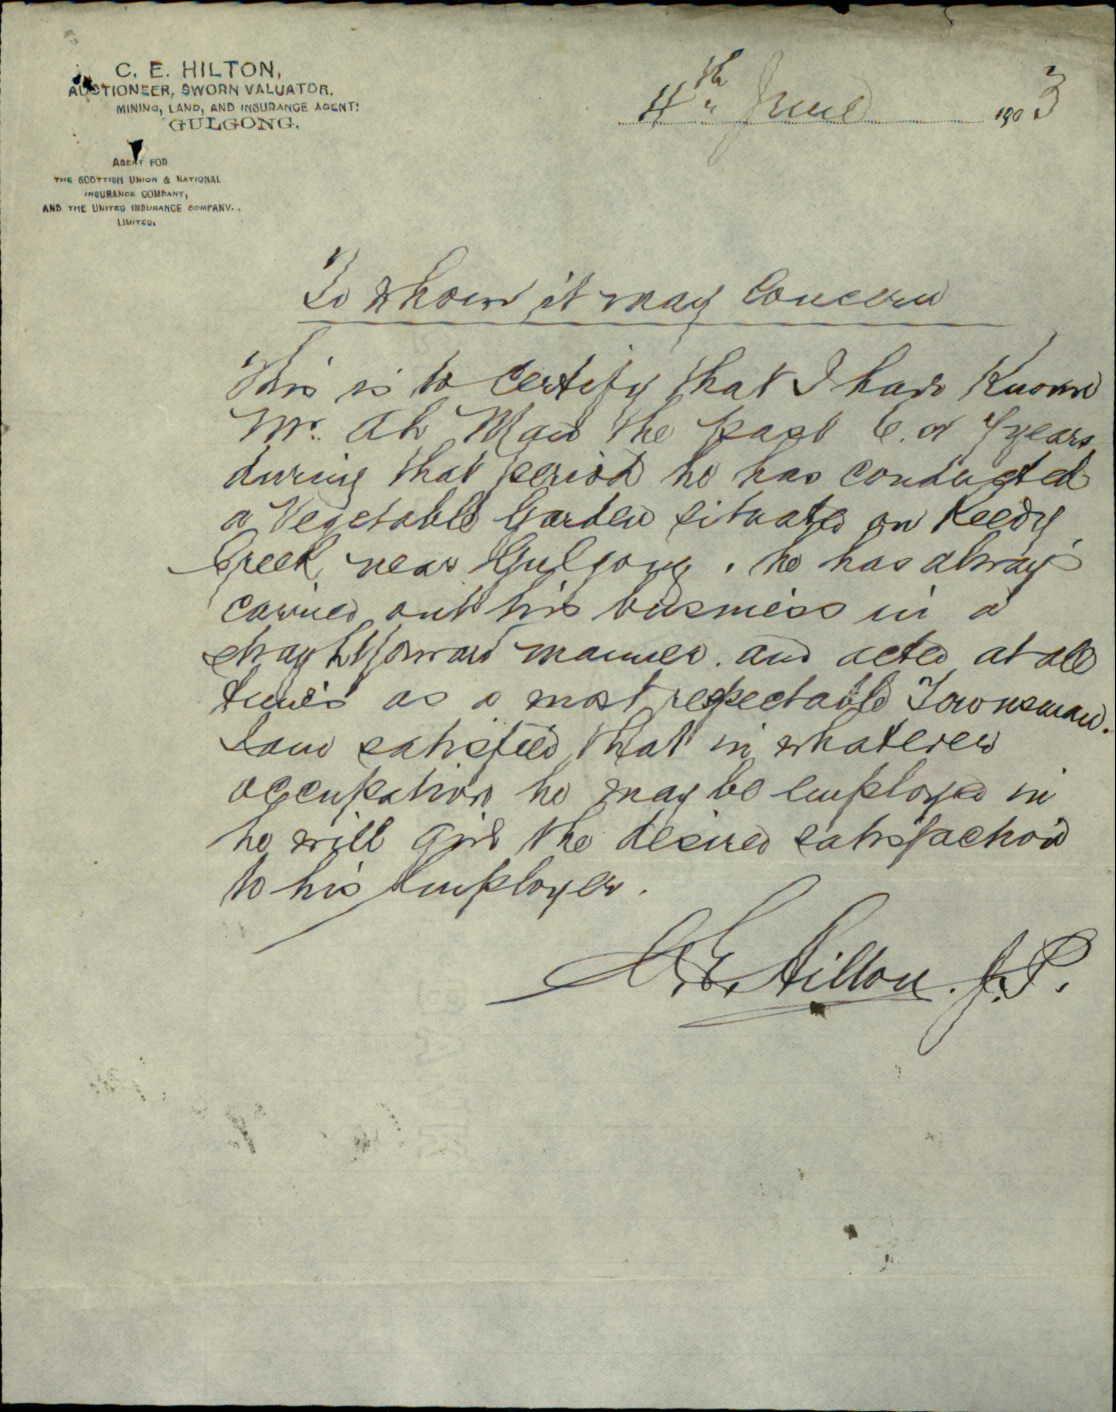 C. E. HILTON,
AUCTIONEER, SWORN VALUATOR.
MINING, LAND, AND INSURANCE AGENT:
GULGONG.
AGENT FOR
THE SCOTTISH UNION & NATIONAL
INSURANCE COMPANY,
AND THE UNITED INSURANCE COMPANY.,
LIMITED.
4th June 1903
To whom it may Concern
This is to Certify that I have Known
Mr. Ah Man the past 6. or 7 years
during that period he has conducted
a Vegetable Garden situated on Reedy
Creek, near Gulgong. he has always
carried out his business in a
straightforward manner. and acted at all
times as a most respectable Townsman.
I am satisfied that in whatever
occupation he may be employed in
he will give the desired satisfaction
to his Employer.
C. E. Hilton. J.P.